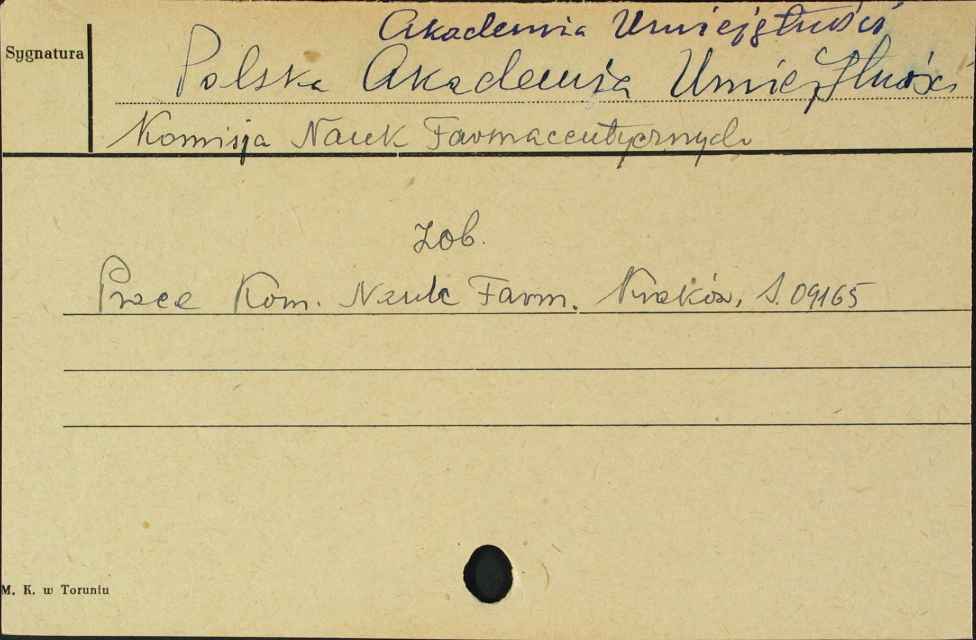 Akademia Umiejętności
Sygnatura
Polska Akademia Umiejętności
Komisja Nauk Farmaceutycznych
zob.
Prace Kom. Nauk Farm. Kraków, S.09165
M. K. w Toruniu